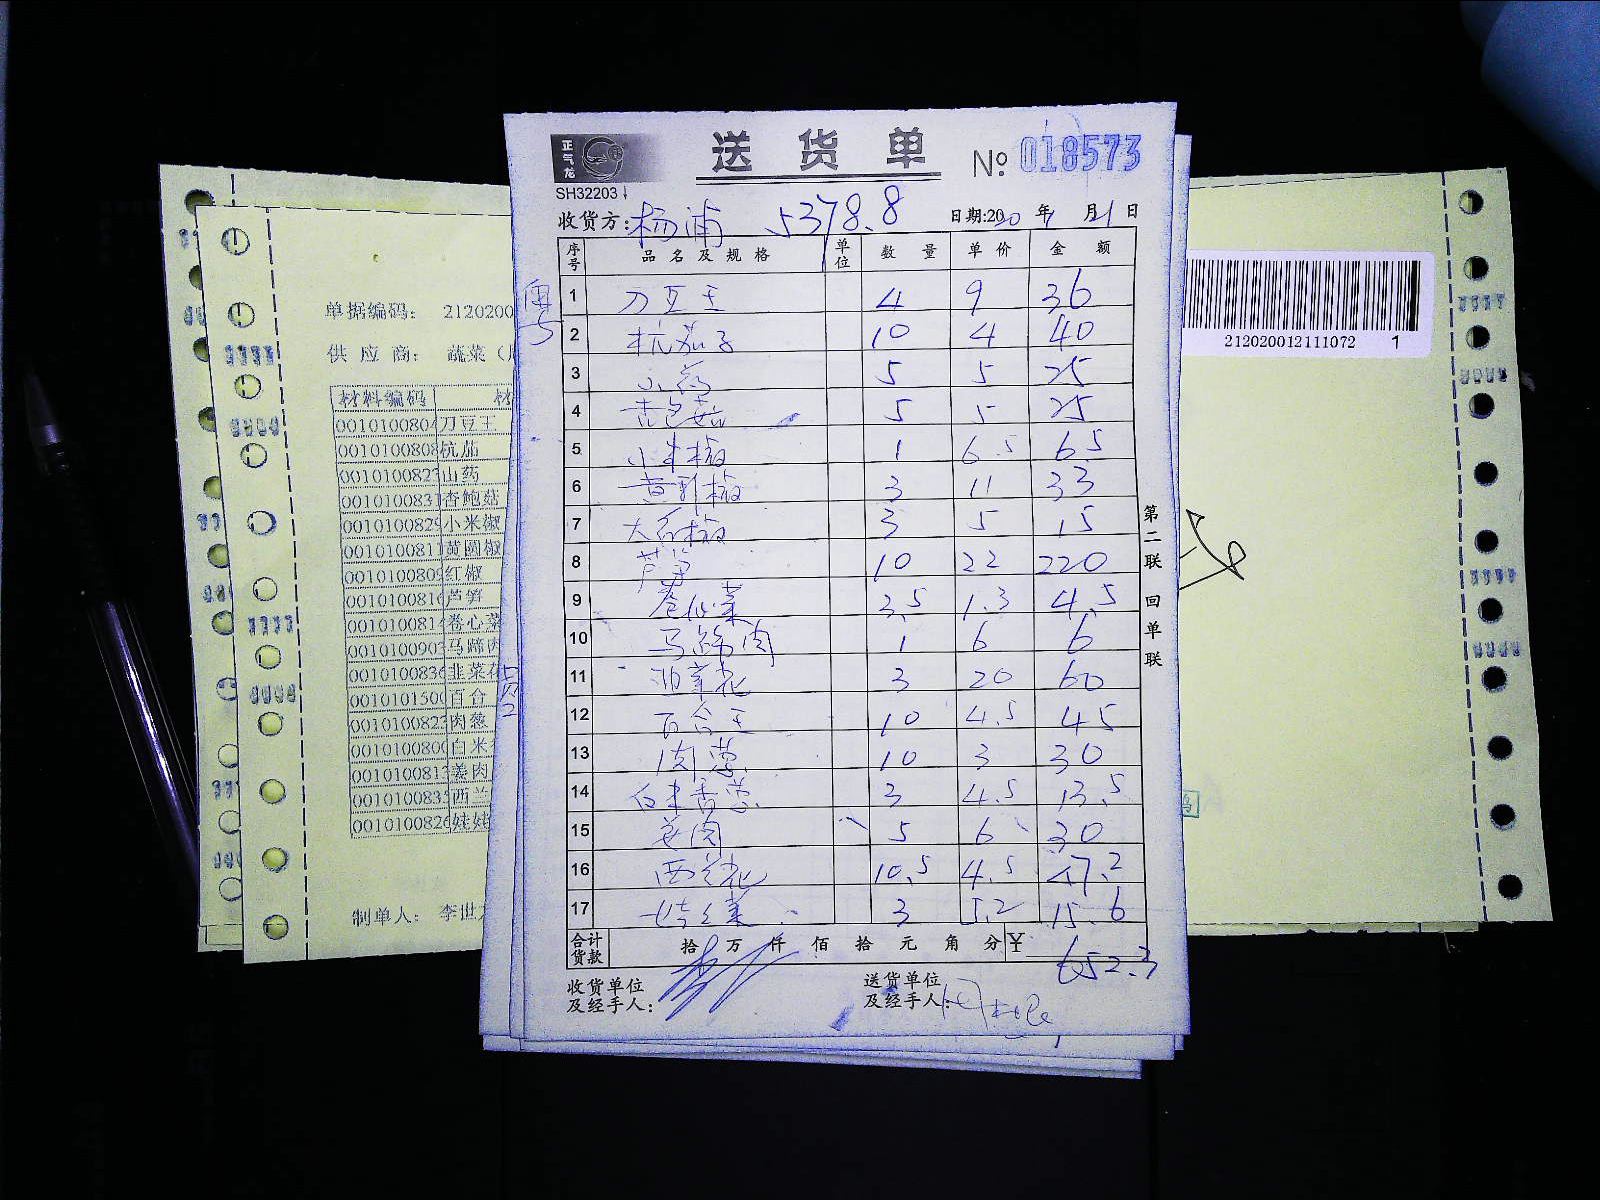 正气龙
送货单
№ 018573
SH32203
收货方: 杨浦 5378.8 日期:2020年1月21日
序号 品名及规格 单位 数量 单价 金额
1 刀豆王 4 9 36
2 杭茄子 10 4 40
3 山药 5 5 25
4 杏包菇 5 5 25
5 小米椒 1 6.5 6.5
6 黄彩椒 3 11 33
7 大红椒 3 5 15
8 芦笋 10 22 220
9 卷心菜 3.5 1.3 4.5
10 马蹄肉 1 6 6
11 韭菜花 3 20 60
12 百合王 10 4.5 45
13 肉葱 10 3 30
14 白米香葱 3 4.5 13.5
15 姜肉 5 6 30
16 西兰花 10.5 4.5 47.2
17 3 5.2 15.6
合计货款 拾 万 仟 佰 拾 元 角 分 ¥ 652.3
收货单位及经手人:
送货单位及经手人:
第二联 回单联
单据编码: 2120200
供应商: 蔬菜
材料编码 材
0010100804 刀豆王
0010100808 杭茄
001010082 山药
001010083 杏鲍菇
0010100829 小米椒
001010081 黄圆椒
0010100809 红椒
0010100816 芦笋
001010081 卷心菜
001010090 马蹄肉
0010100836 韭菜花
0010101500 百合
001010082 肉葱
0010100800 白米
001010081 姜肉
001010083 西兰
0010100826 姥姥
制单人: 李世
212020012111072 1